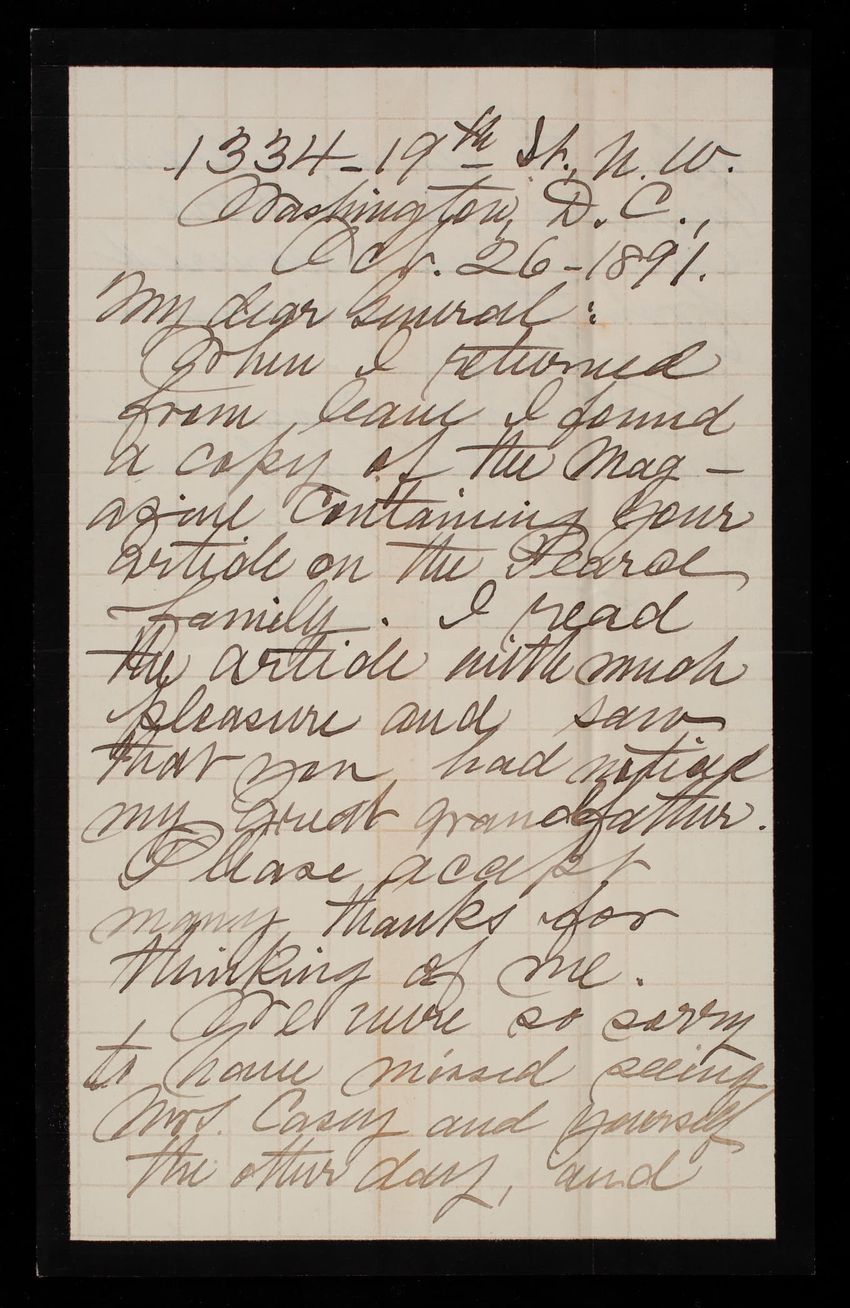 1334-19th St., N. W.
Washington, D. C.,
Oct. 26-1891.
My dear General:
When I returned
from leave I found
a copy of the Mag-
azine containing your
article on the Pearce
family. I read
the article with much
pleasure and saw
that you had noticed
my great grandfather.
Please accept
many thanks for
thinking of me.
We were so sorry
to have missed seeing
Mrs. Casey and yourself
the other day, and